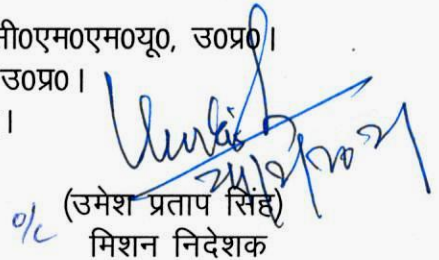 नी0एम0एम0यू0, उ0प्र0।
उ0प्र0।
।
o/c (उमेश प्रताप सिंह)
मिशन निदेशक